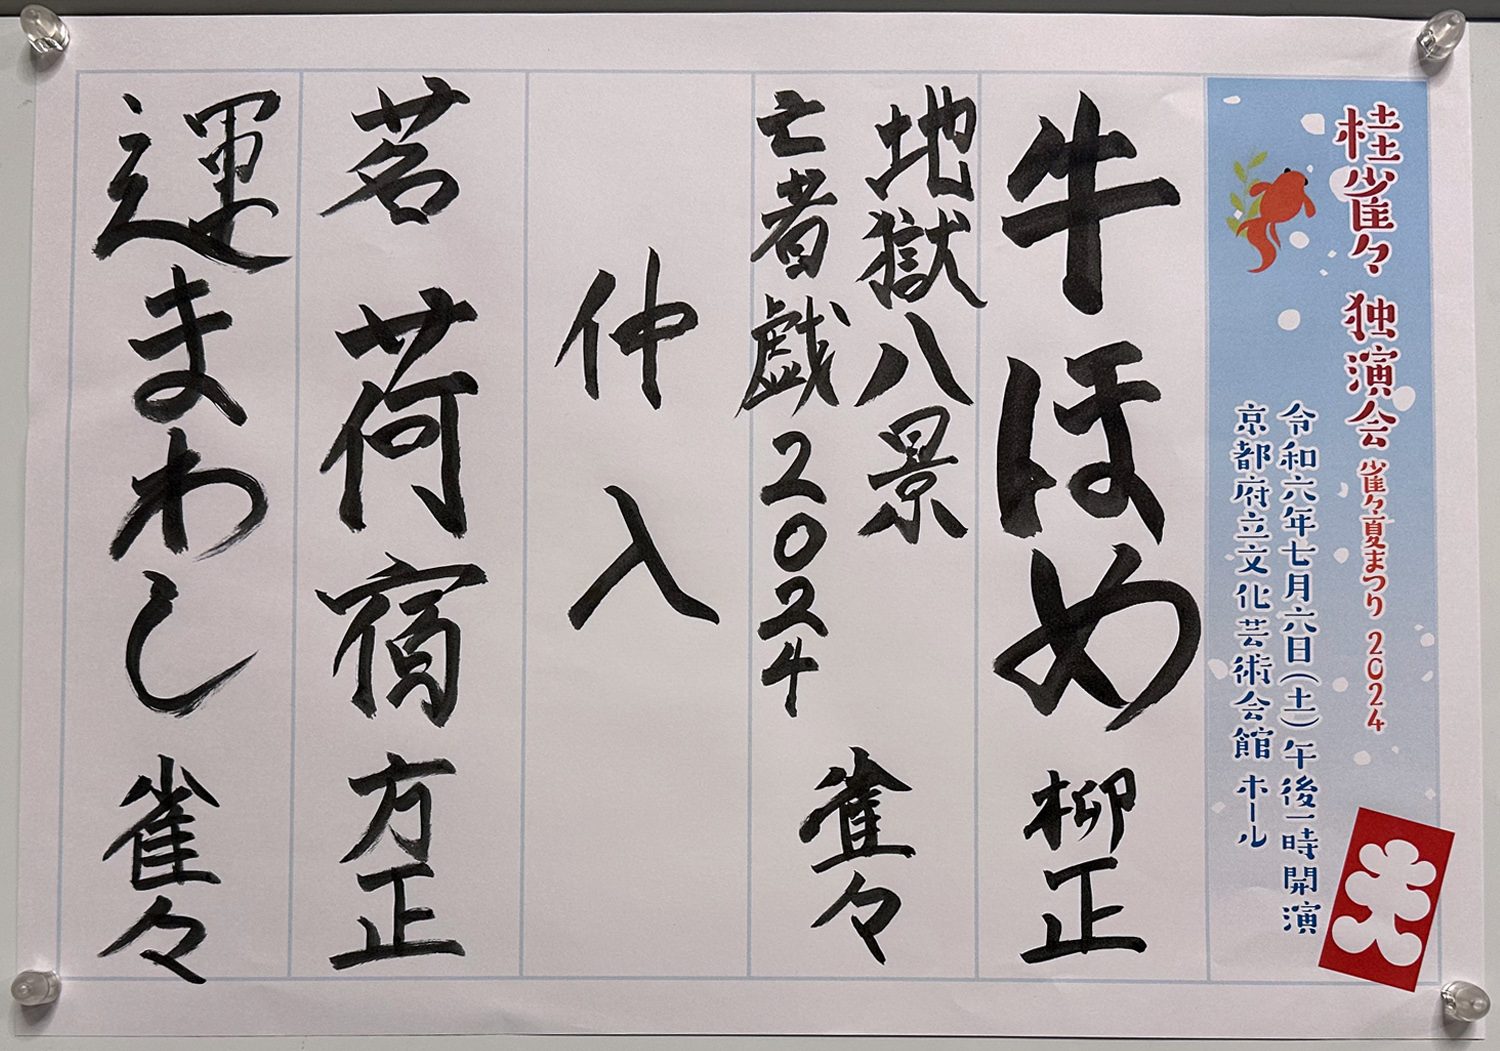 桂雀々 独演会 雀々夏まつり 2024
令和六年七月六日(土)午後一時開演
京都府立文化芸術会館 ホール
牛ほめ 柳正
地獄八景
亡者戯2024 雀々
仲入
茗荷宿 方正
運まわし 雀々